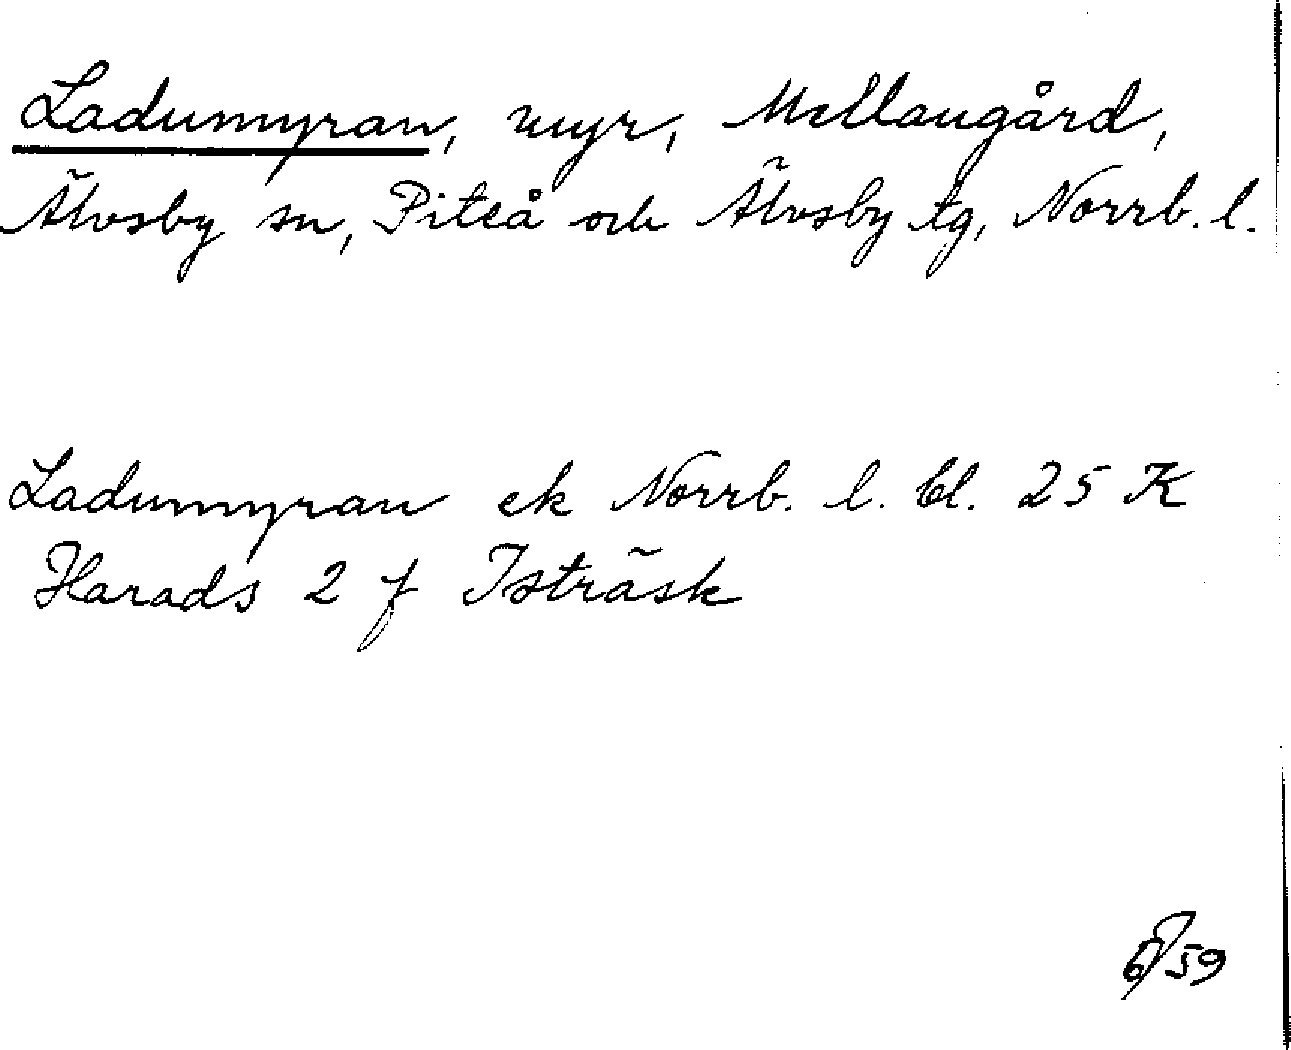 Ladumyran, myr, Mellangård,
Älvsby sn, Piteå och Älvsby tg, Norrb. l.
Ladumyran ek Norrb. l. bl. 25 K
Harads 2 f Isträsk
59